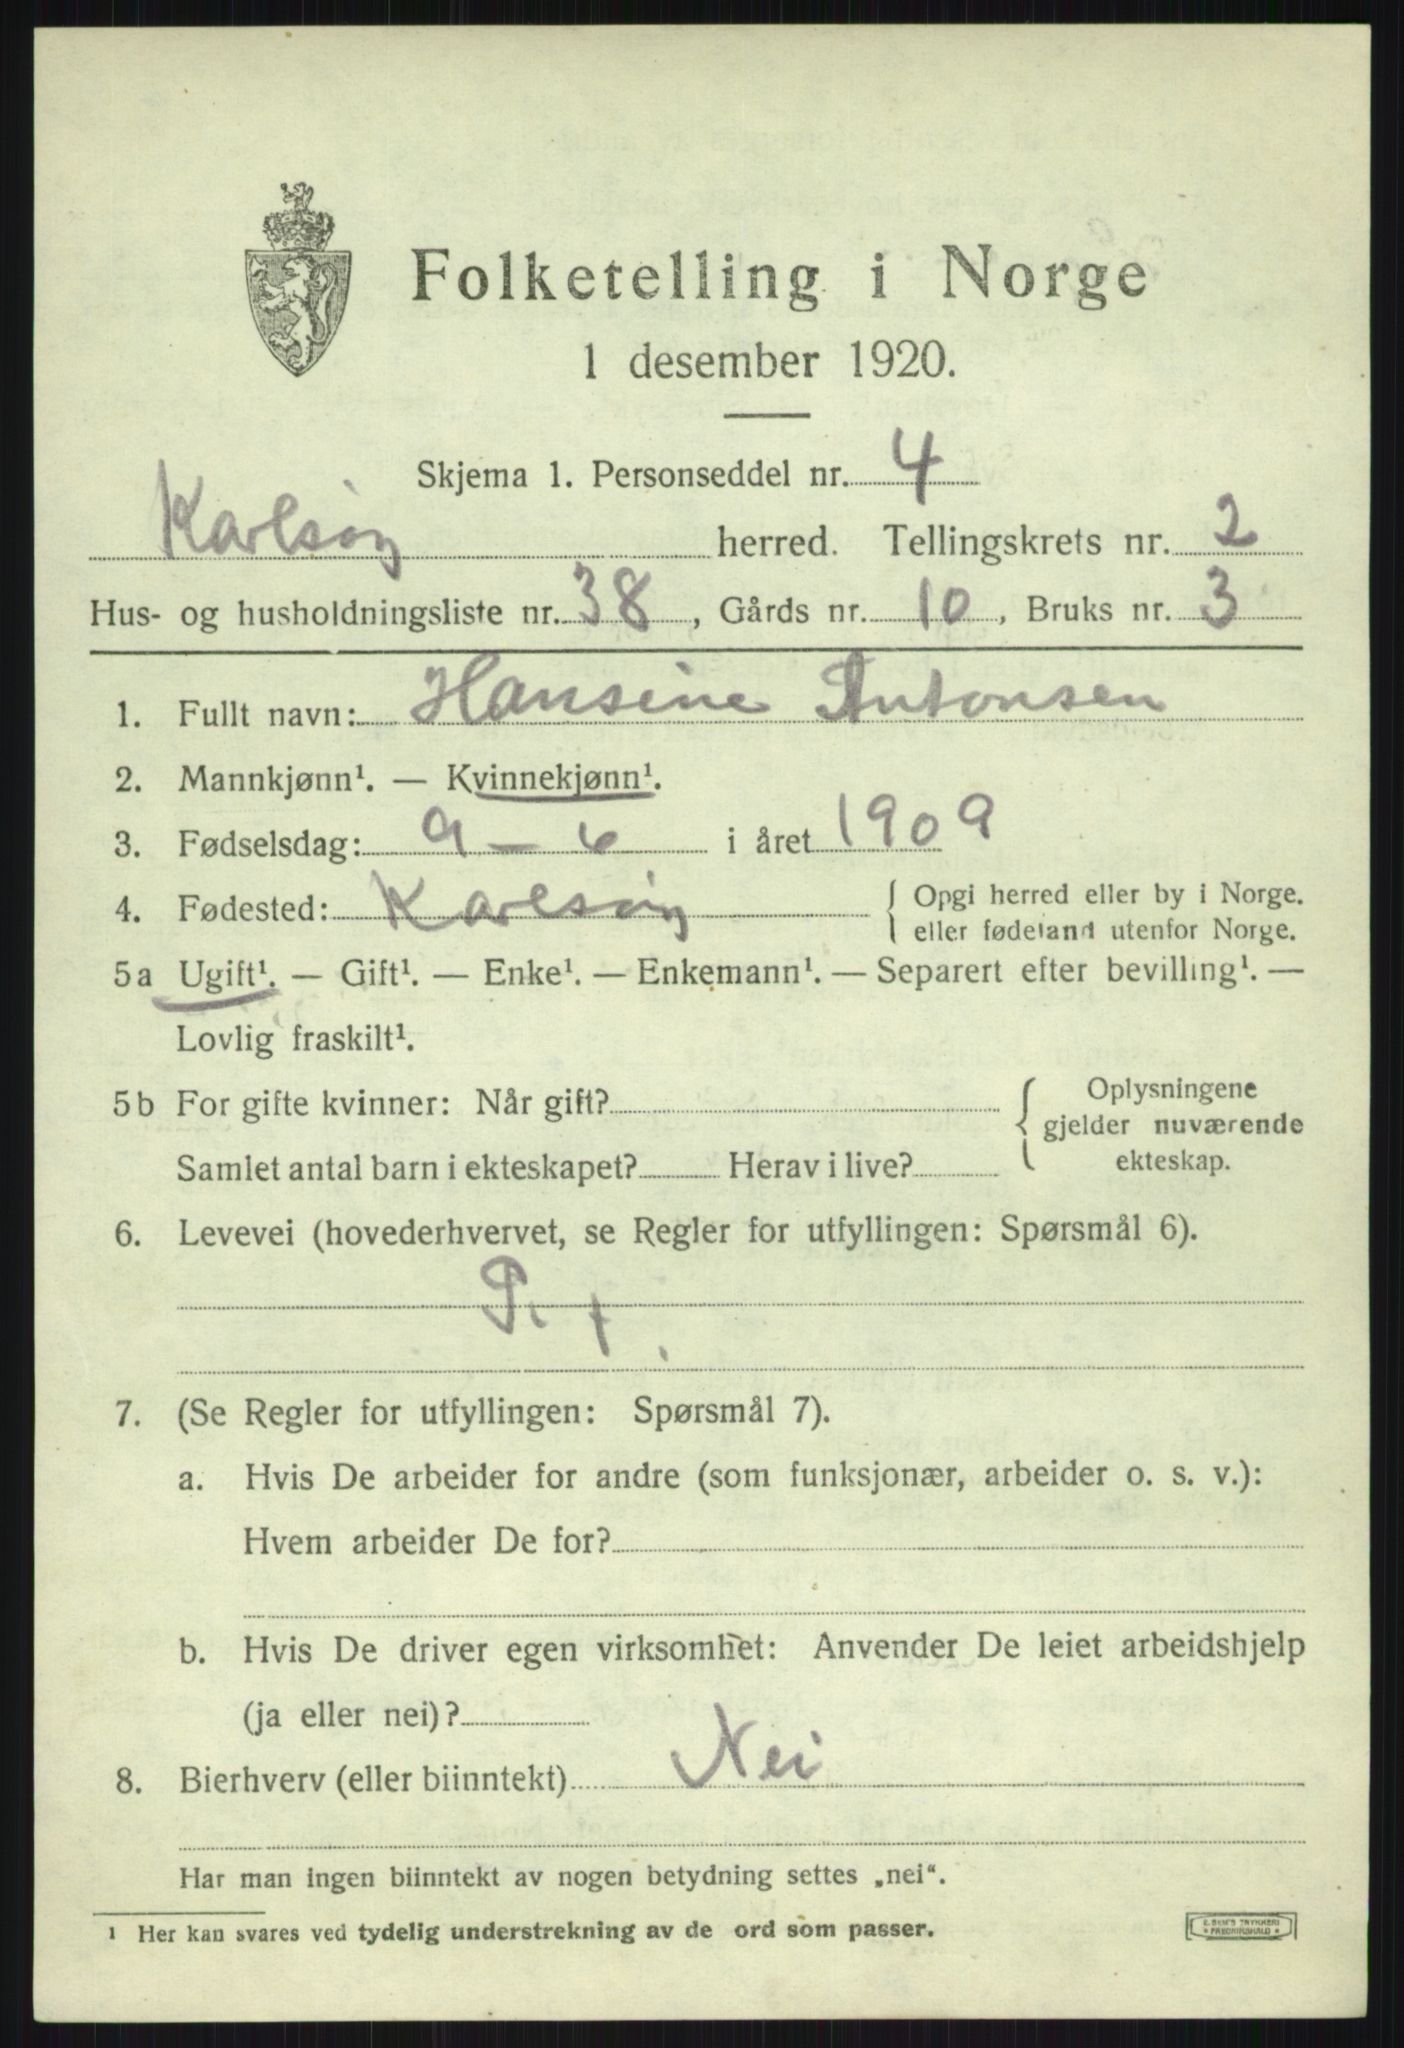 Folketelling i Norge
1 desember 1920.
Skjema 1. Personseddel nr. 4
Karlsøy herred. Tellingskrets nr. 2
Hus- og husholdningsliste nr. 38, Gårds nr. 10, Bruks nr. 3
1. Fullt navn: Hansine Antonsen
2. Mannkjønn¹. — Kvinnekjønn¹.
3. Fødselsdag: 9 - 6 i året 1909
4. Fødested: Karlsøy { Opgi herred eller by i Norge.
eller fødeland utenfor Norge.
5a Ugift¹. — Gift¹. — Enke¹. — Enkemann¹. — Separert efter bevilling¹. —
Lovlig fraskilt¹.
5b For gifte kvinner: Når gift? { Oplysningene
gjelder nuværende
Samlet antal barn i ekteskapet? Herav i live? ekteskap.
6. Levevei (hovederhvervet, se Regler for utfyllingen: Spørsmål 6).
7. (Se Regler for utfyllingen: Spørsmål 7).
a. Hvis De arbeider for andre (som funksjonær, arbeider o. s. v.):
Hvem arbeider De for?
b. Hvis De driver egen virksomhet: Anvender De leiet arbeidshjelp
(ja eller nei)?
8. Bierhverv (eller biinntekt) Nei
Har man ingen biinntekt av nogen betydning settes „nei“.
¹ Her kan svares ved tydelig understrekning av de ord som passer.